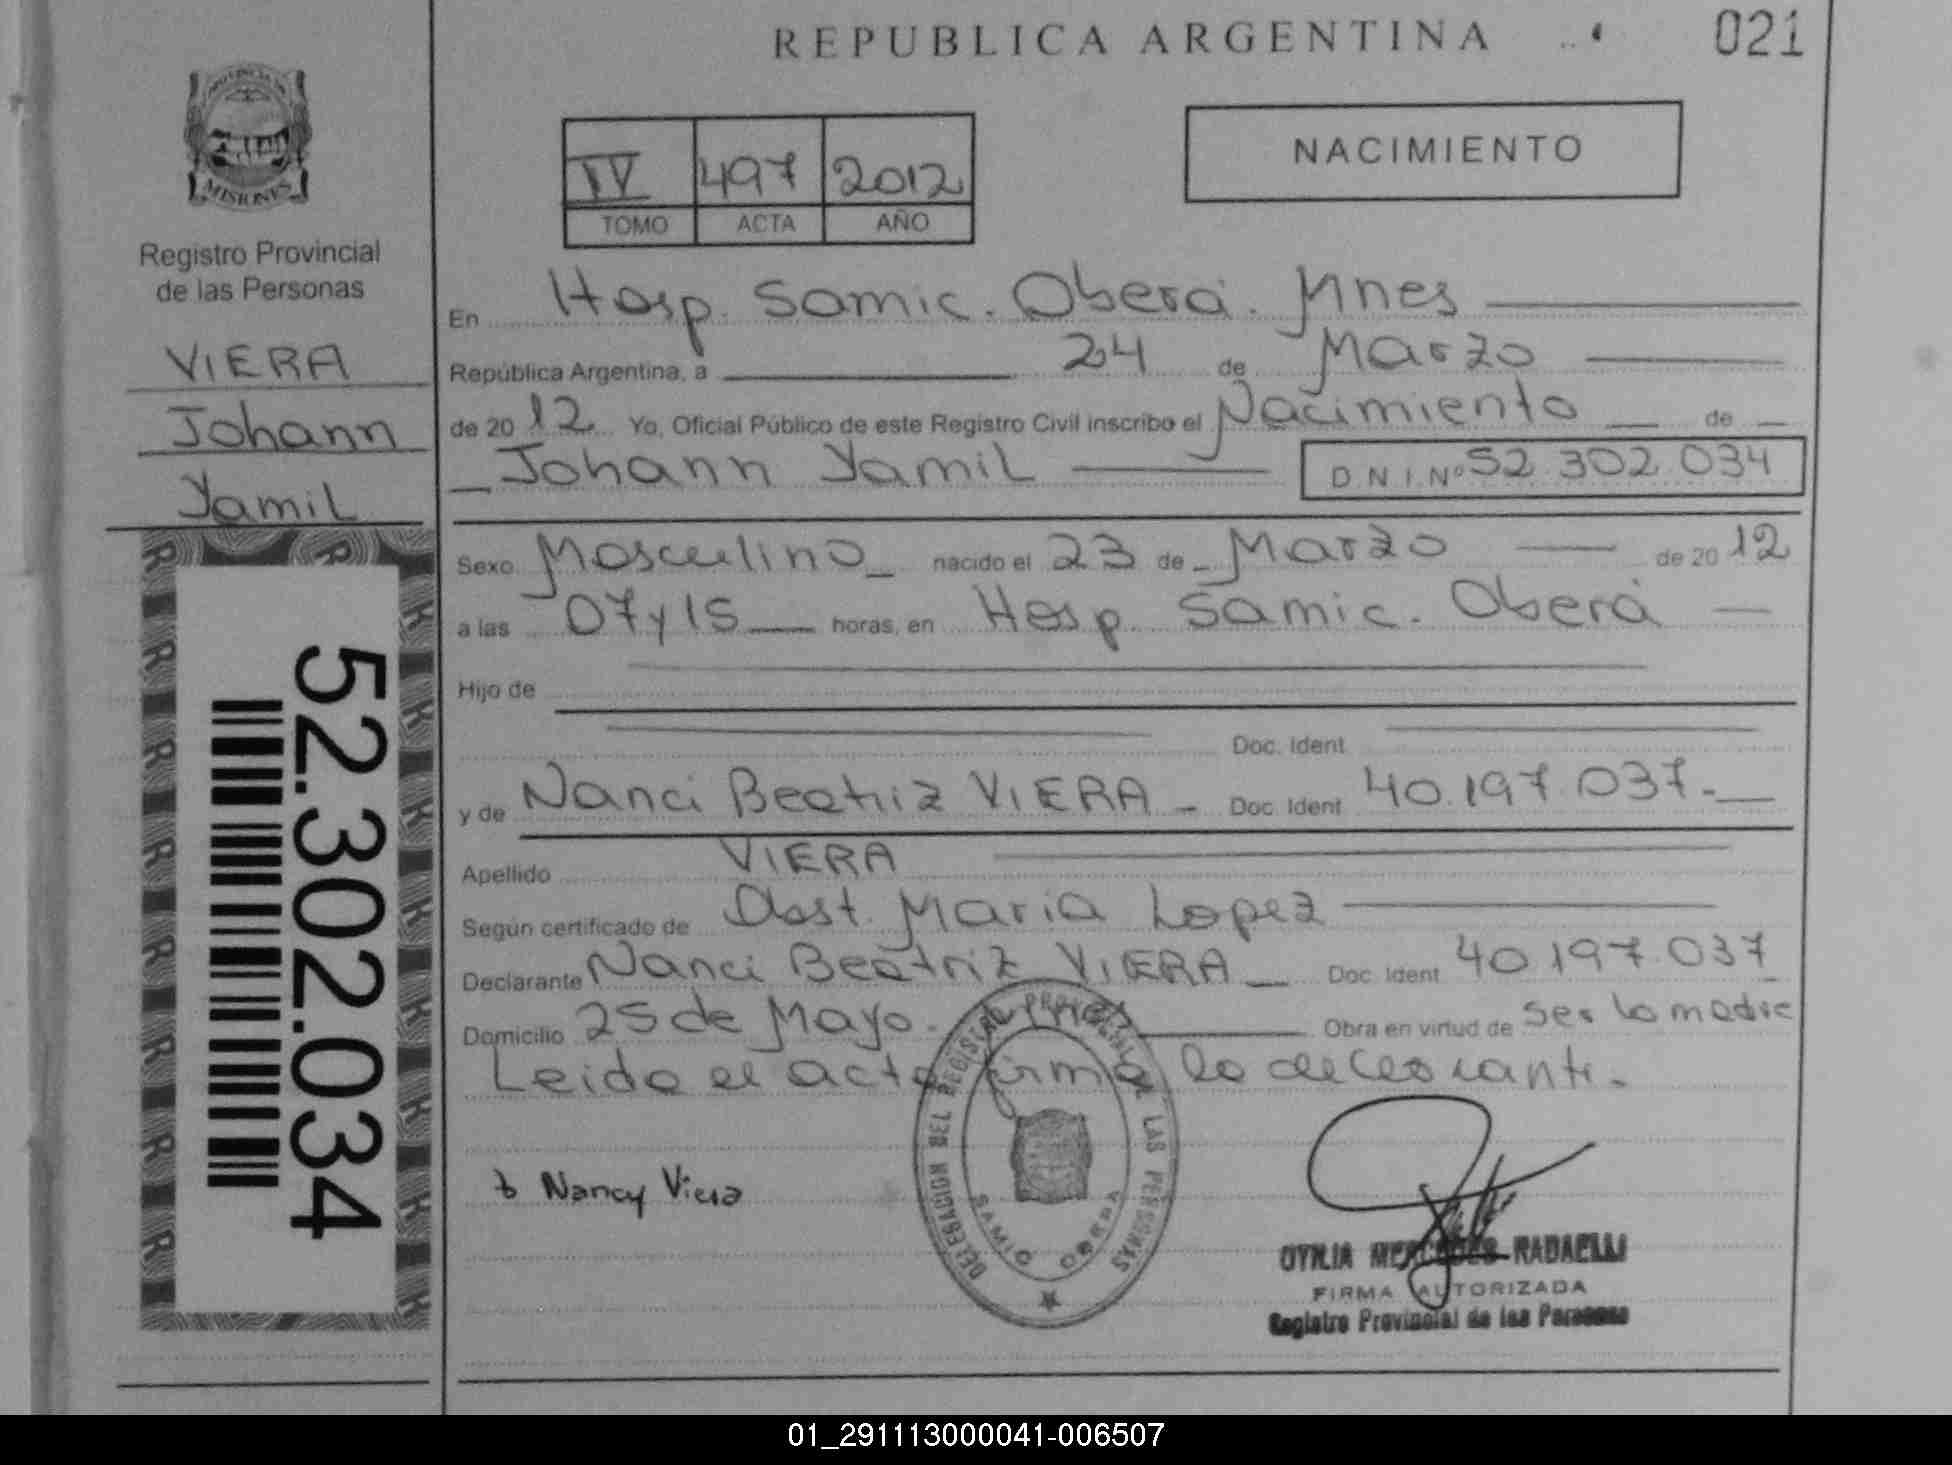 REPUBLICA ARGENTINA
021
PROVINCIA DE
MISIONES
Registro Provincial
de las Personas
VIERA
Johann
Yamil
52.302.034
IV 497 2012
TOMO ACTA AÑO
NACIMIENTO
En Hosp. Samic. Oberá. Mnes
República Argentina, a 24 de Marzo
de 20 12 Yo, Oficial Público de este Registro Civil inscribo el Nacimiento de
Johann Yamil D N I Nº 52.302.034
Sexo Masculino nacido el 23 de Marzo de 20 12
a las 07 y 15 horas, en Hosp. Samic. Oberá
Hijo de
Doc. Ident
y de Nanci Beatriz VIERA Doc. Ident 40.197.037.
Apellido VIERA
Según certificado de Obst. Maria Lopez
Declarante Nanci Beatriz VIERA Doc. Ident 40.197.037
Domicilio 25 de Mayo. Obra en virtud de ser la madre
Leida el acta firma la declarante.
Nancy Viera
DELEGACION DEL REGISTRO PROVINCIAL LAS PERSONAS
SAMIC OBERA
MERCEDES RADAELLI
FIRMA AUTORIZADA
Registro Provincial de las Personas
01_291113000041-006507